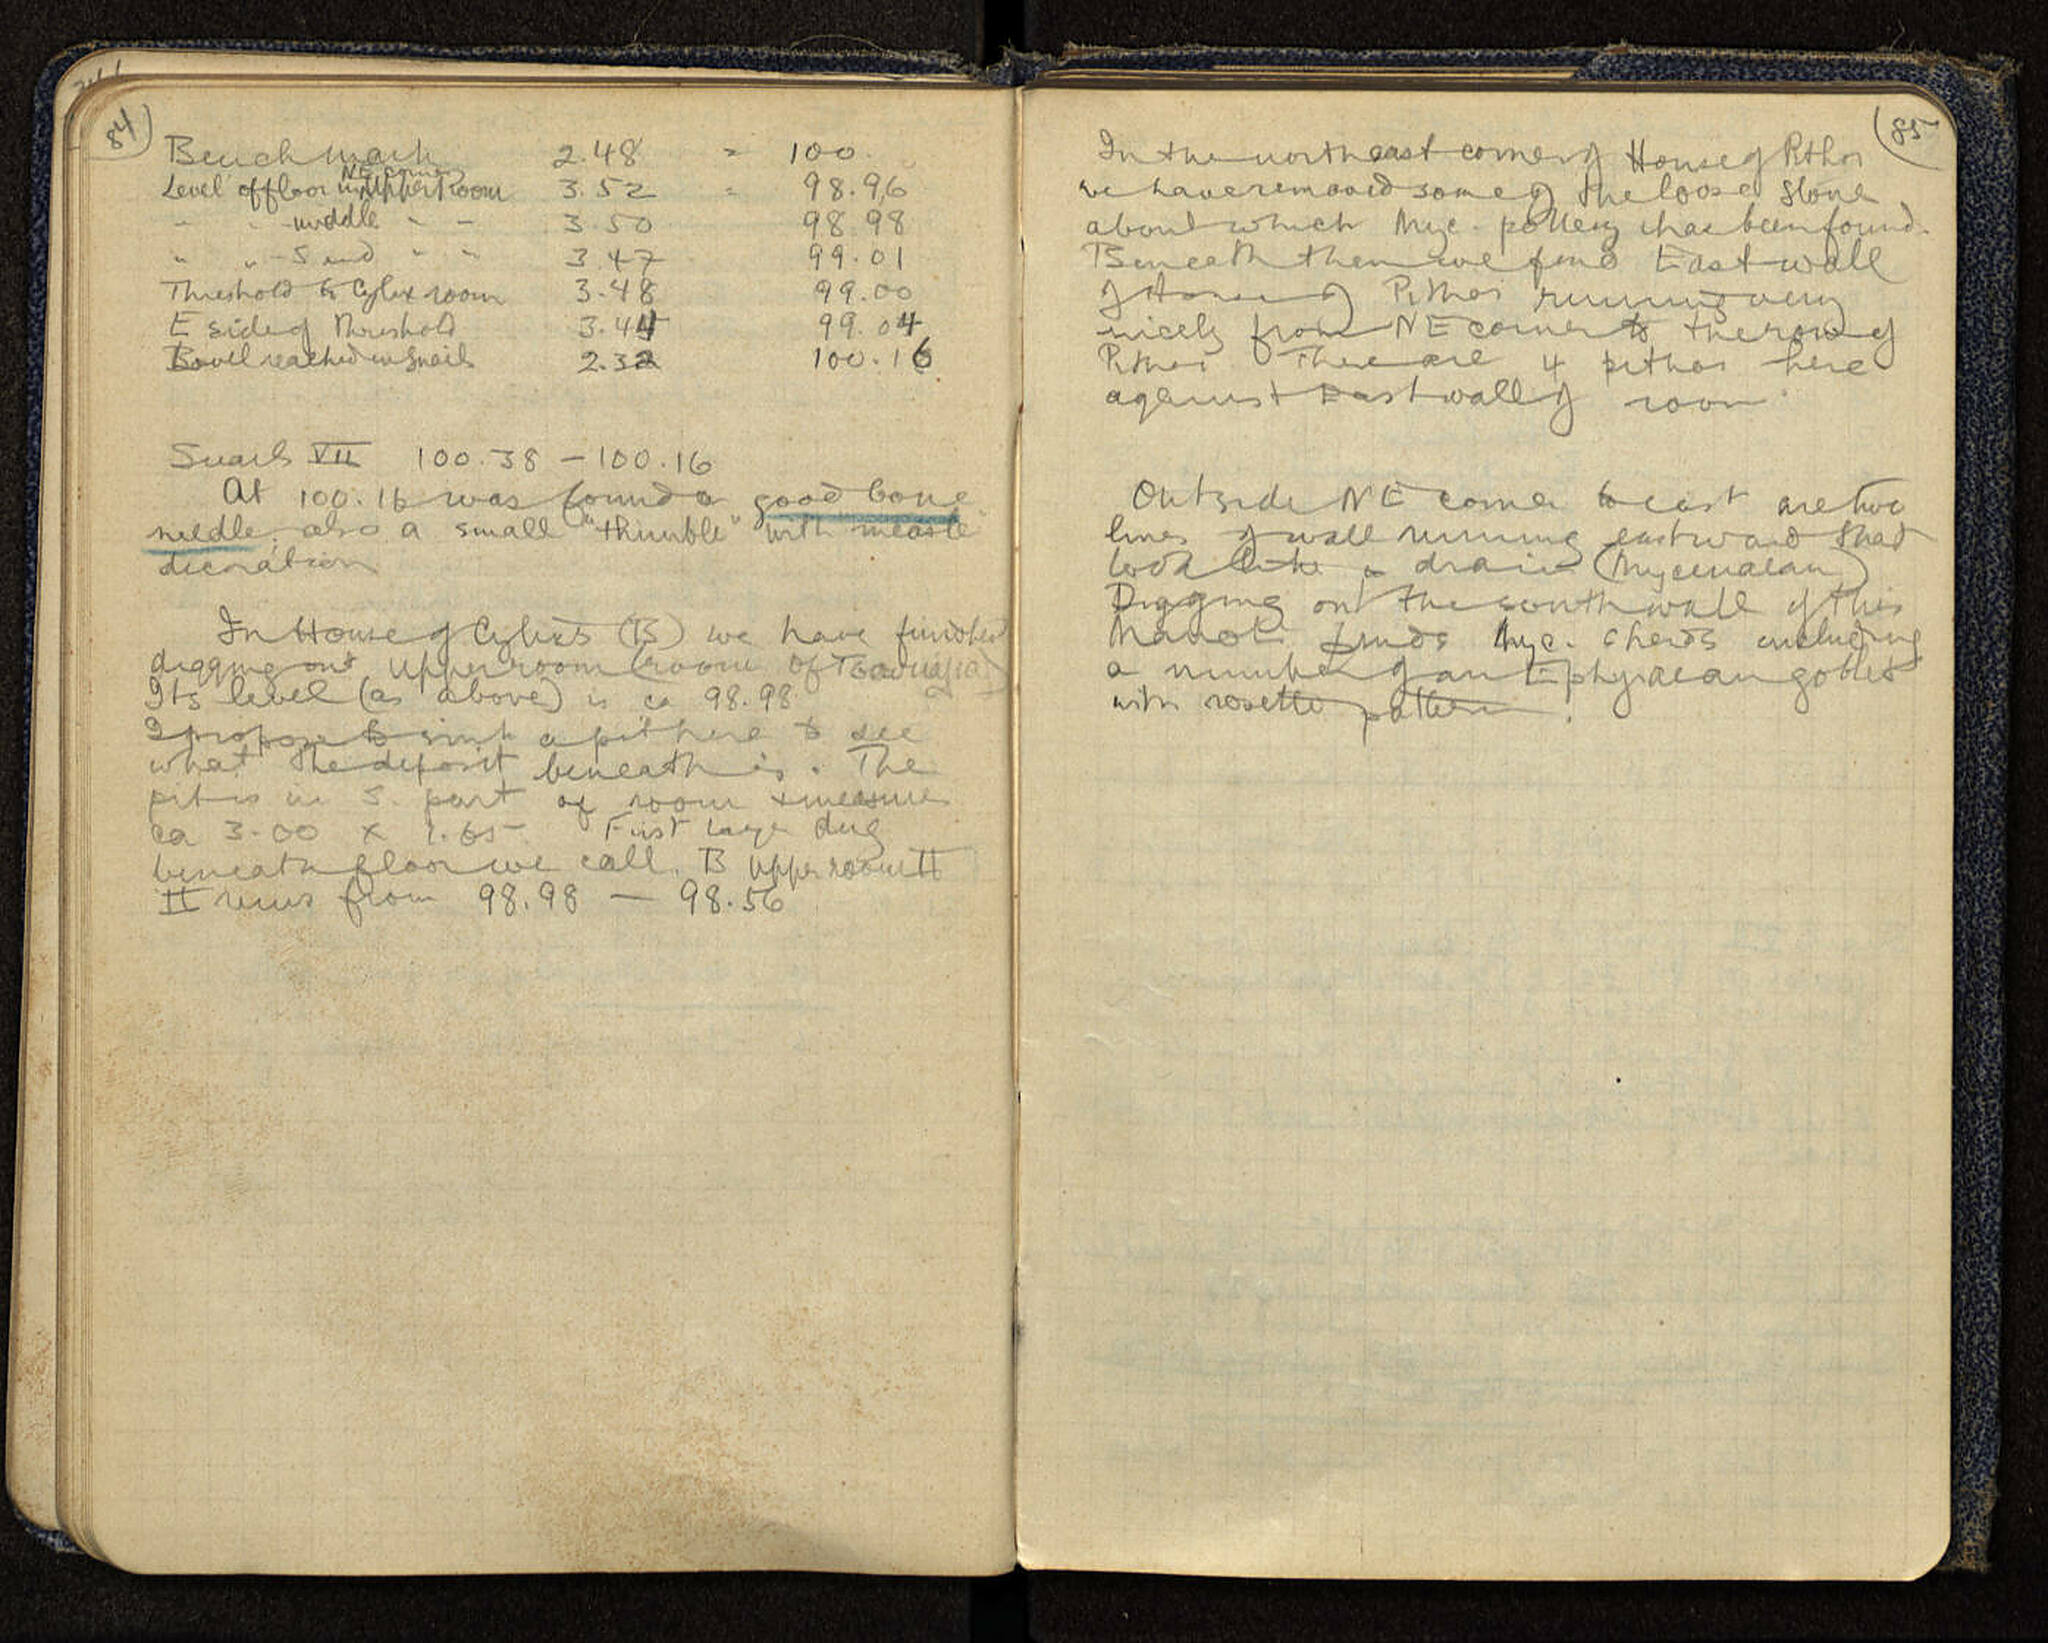 84
Bench mark 2.48 = 100.
NE corner
Level of floor in Upper room 3.52 = 98.96
" " middle " " 3.50 98.98
" " S end " " 3.47 99.01
Threshold to Cylix room 3.48 99.00
E side of Threshold 3.44 99.04
Level reached in Snails 2.32 100.16
Snails VII 100.38 – 100.16
At 100.16 was found a good bone
needle, also a small "thimble" with "measle"
decoration
In House of Cylixes (B) we have finished
digging out Upper room (room of
Its level (as above) is ca 98.98
I propose to sink a pit here to see
what the deposit beneath is. The
pit is in S. part of room & measures
ca 3.00 x 1.65 First layer dug
beneath floor we call B Upper room II
II runs from 98.98 — 98.56
85
In the northeast corner of House of Pithoi
we have removed some of the loose stone
about which Myc. pottery has been found.
Beneath them we find East wall
of House of Pithoi running very
nicely from NE corner to the row of
Pithoi. There are 4 pithoi here
against East wall of room.
Outside NE corner to east are two
lines of wall running eastward that
look like a drain (Mycenaean)
Digging on the south wall of this
Manoli finds Myc. sherds including
a number of an Ephyraean goblet
with rosette pattern.